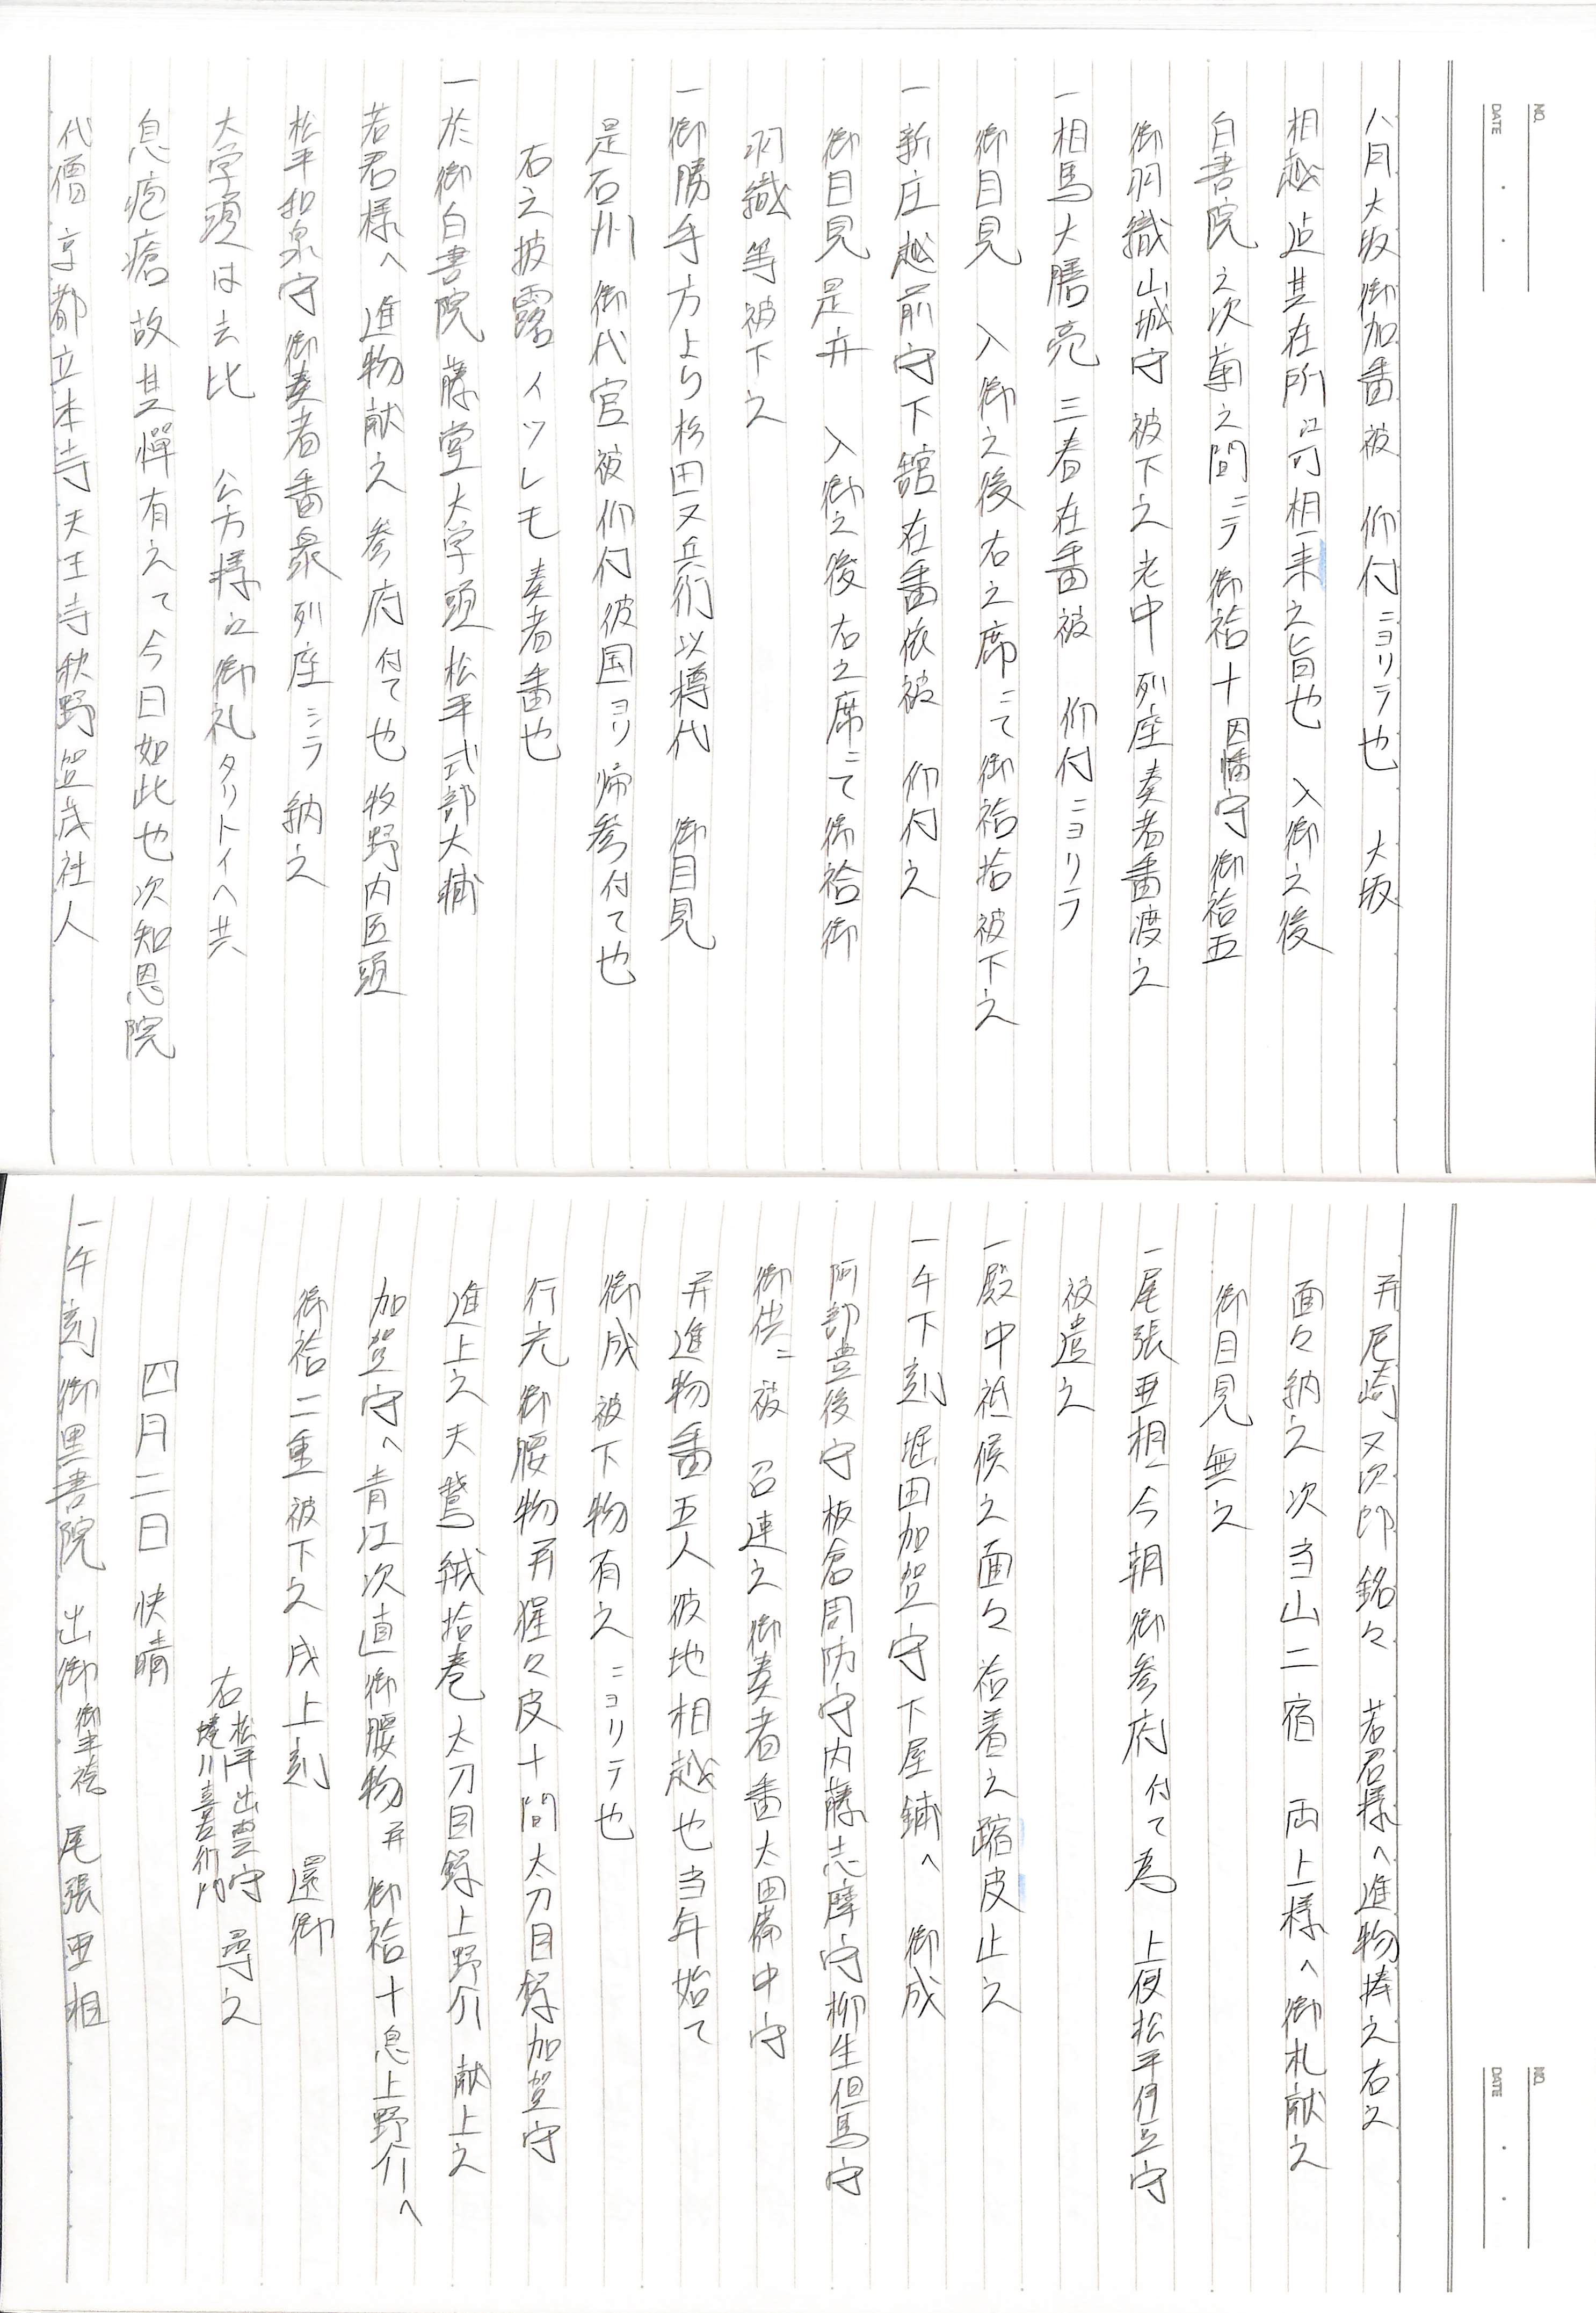 NO.
DATE
八月大坂御加番被 仰付ニヨリテ也 大坂
相越迠其在所江可相来之旨也 入御之後
白書院之次菊之間ニテ御袷十因幡守御袷五
御羽織山城守被下之老中列座奏者番渡之
一相馬大膳亮三春在番被 仰付ニヨリテ
御目見 入御之後右之席ニて御袷拾被下之
一新庄越前守下舘在番依被 仰付之
御目見是弁 入御之後右之席ニて御袷御
羽織等被下之
一御勝手方より杉田又兵衛以樽代 御目見
是石州御代官被仰付彼国ヨリ帰参付て也
右之披露イツレモ奏者番也
一於御白書院藤堂大学頭松平式部大輔
若君様へ進物献之参府付て也牧野内匠頭
松平和泉守御奏者番衆列座ニテ納之
大学頭は去比 公方様江御礼タリトイへ共
息疱瘡故其憚有之て今日如此也次知恩院
代僧京都立本寺天王寺秋野并歳社人
NO.
DATE
并尼崎又次郎銘々 若君様へ進物捧之右之
面々納之次当山二宿 両上様へ御札献之
御目見無之
一尾張亜相今朝御参府付て為 上使松平伊豆守
被遣之
一殿中祗候之面々袷着之踏皮止之
一午下刻堀田加賀守下屋鋪へ 御成
阿部豊後守板倉周防守内藤志摩守柳生但馬守
御供ニ被 召連之御奏者番太田備中守
并進物番五人彼地相越也当年始て
御成被下物有之ニヨリテ也
行光御腰物并猩々皮十間太刀目録加賀守
進上之天鵞絨拾巻太刀目録上野介献上之
加賀守へ青江次直御腰物并御袷十息上野介へ
御袷二重被下之戌上刻 還御
右松平出雲守蜷川喜左衛門尋之
四月二日快晴
一午刻御黒書院 出御御半袴尾張亜相